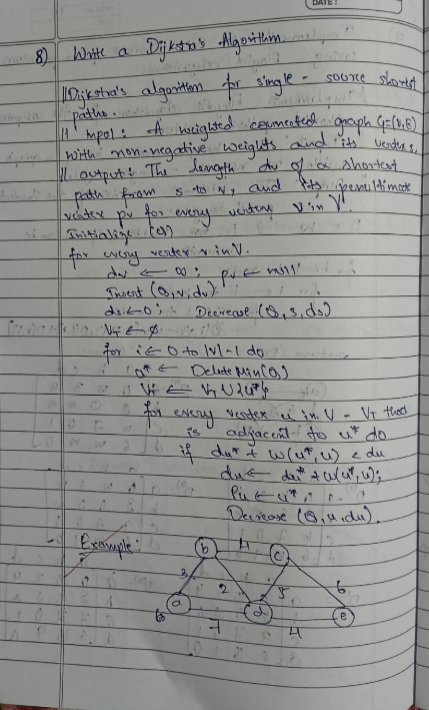 DATE:
8) Write a Dijkstra's Algorithm.
//Dijkstra's algorithm for single - source shortest
paths.
// Input: A weighted connected graph G=(V,E)
with non-negative weights and its vertex s.
// output: The length dv of a shortest
path from s to v, and its penultimate
vertex pv for every vertex v in V.
Initialize (Q)
for every vertex v in V.
dv ← ∞; pv ← null
Insert (Q, v, dv).
ds ← 0; Decrease (Q, s, ds)
VT ← ∅.
for i ← 0 to |V| - 1 do
u* ← DeleteMin(Q)
VT ← VT U {u*}
for every vertex u in V - VT that
is adjacent to u* do
if du* + w(u*, u) < du
du ← du* + w(u*, u);
Pu ← u*,
Decrease (Q, u, du).
Example:
b 4 c
3 2 5 6
a d e
7 4